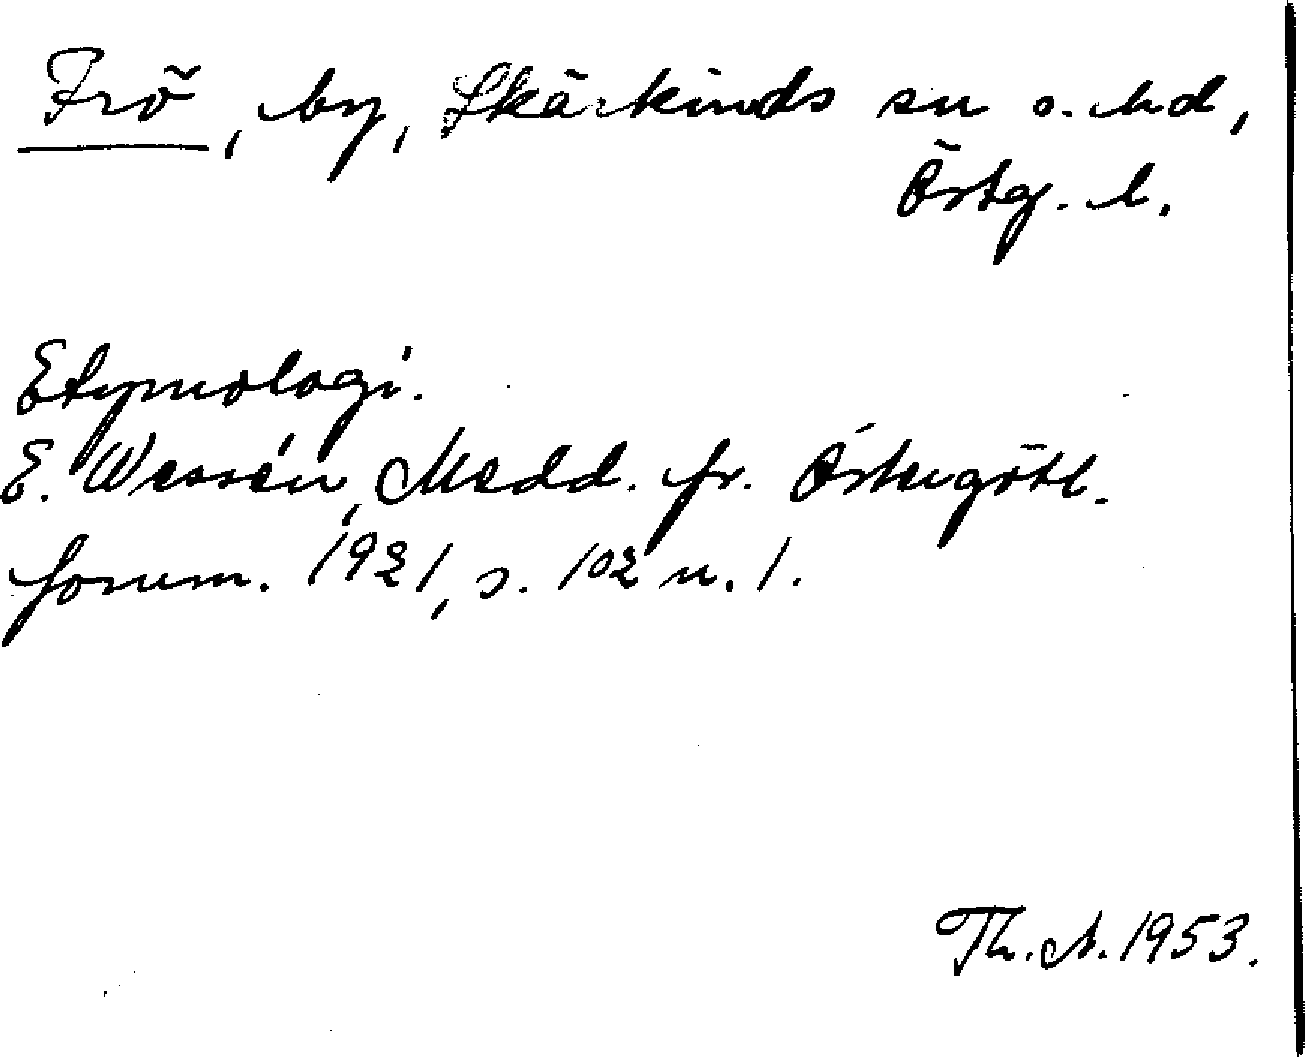 Frö, by, Skärkinds sn o. hd,
Östg. l.
Etymologi.
E. Wessén, Medd. fr. Östergötl.
fornm. 1921, s. 102 n. 1.
Th. A. 1953.